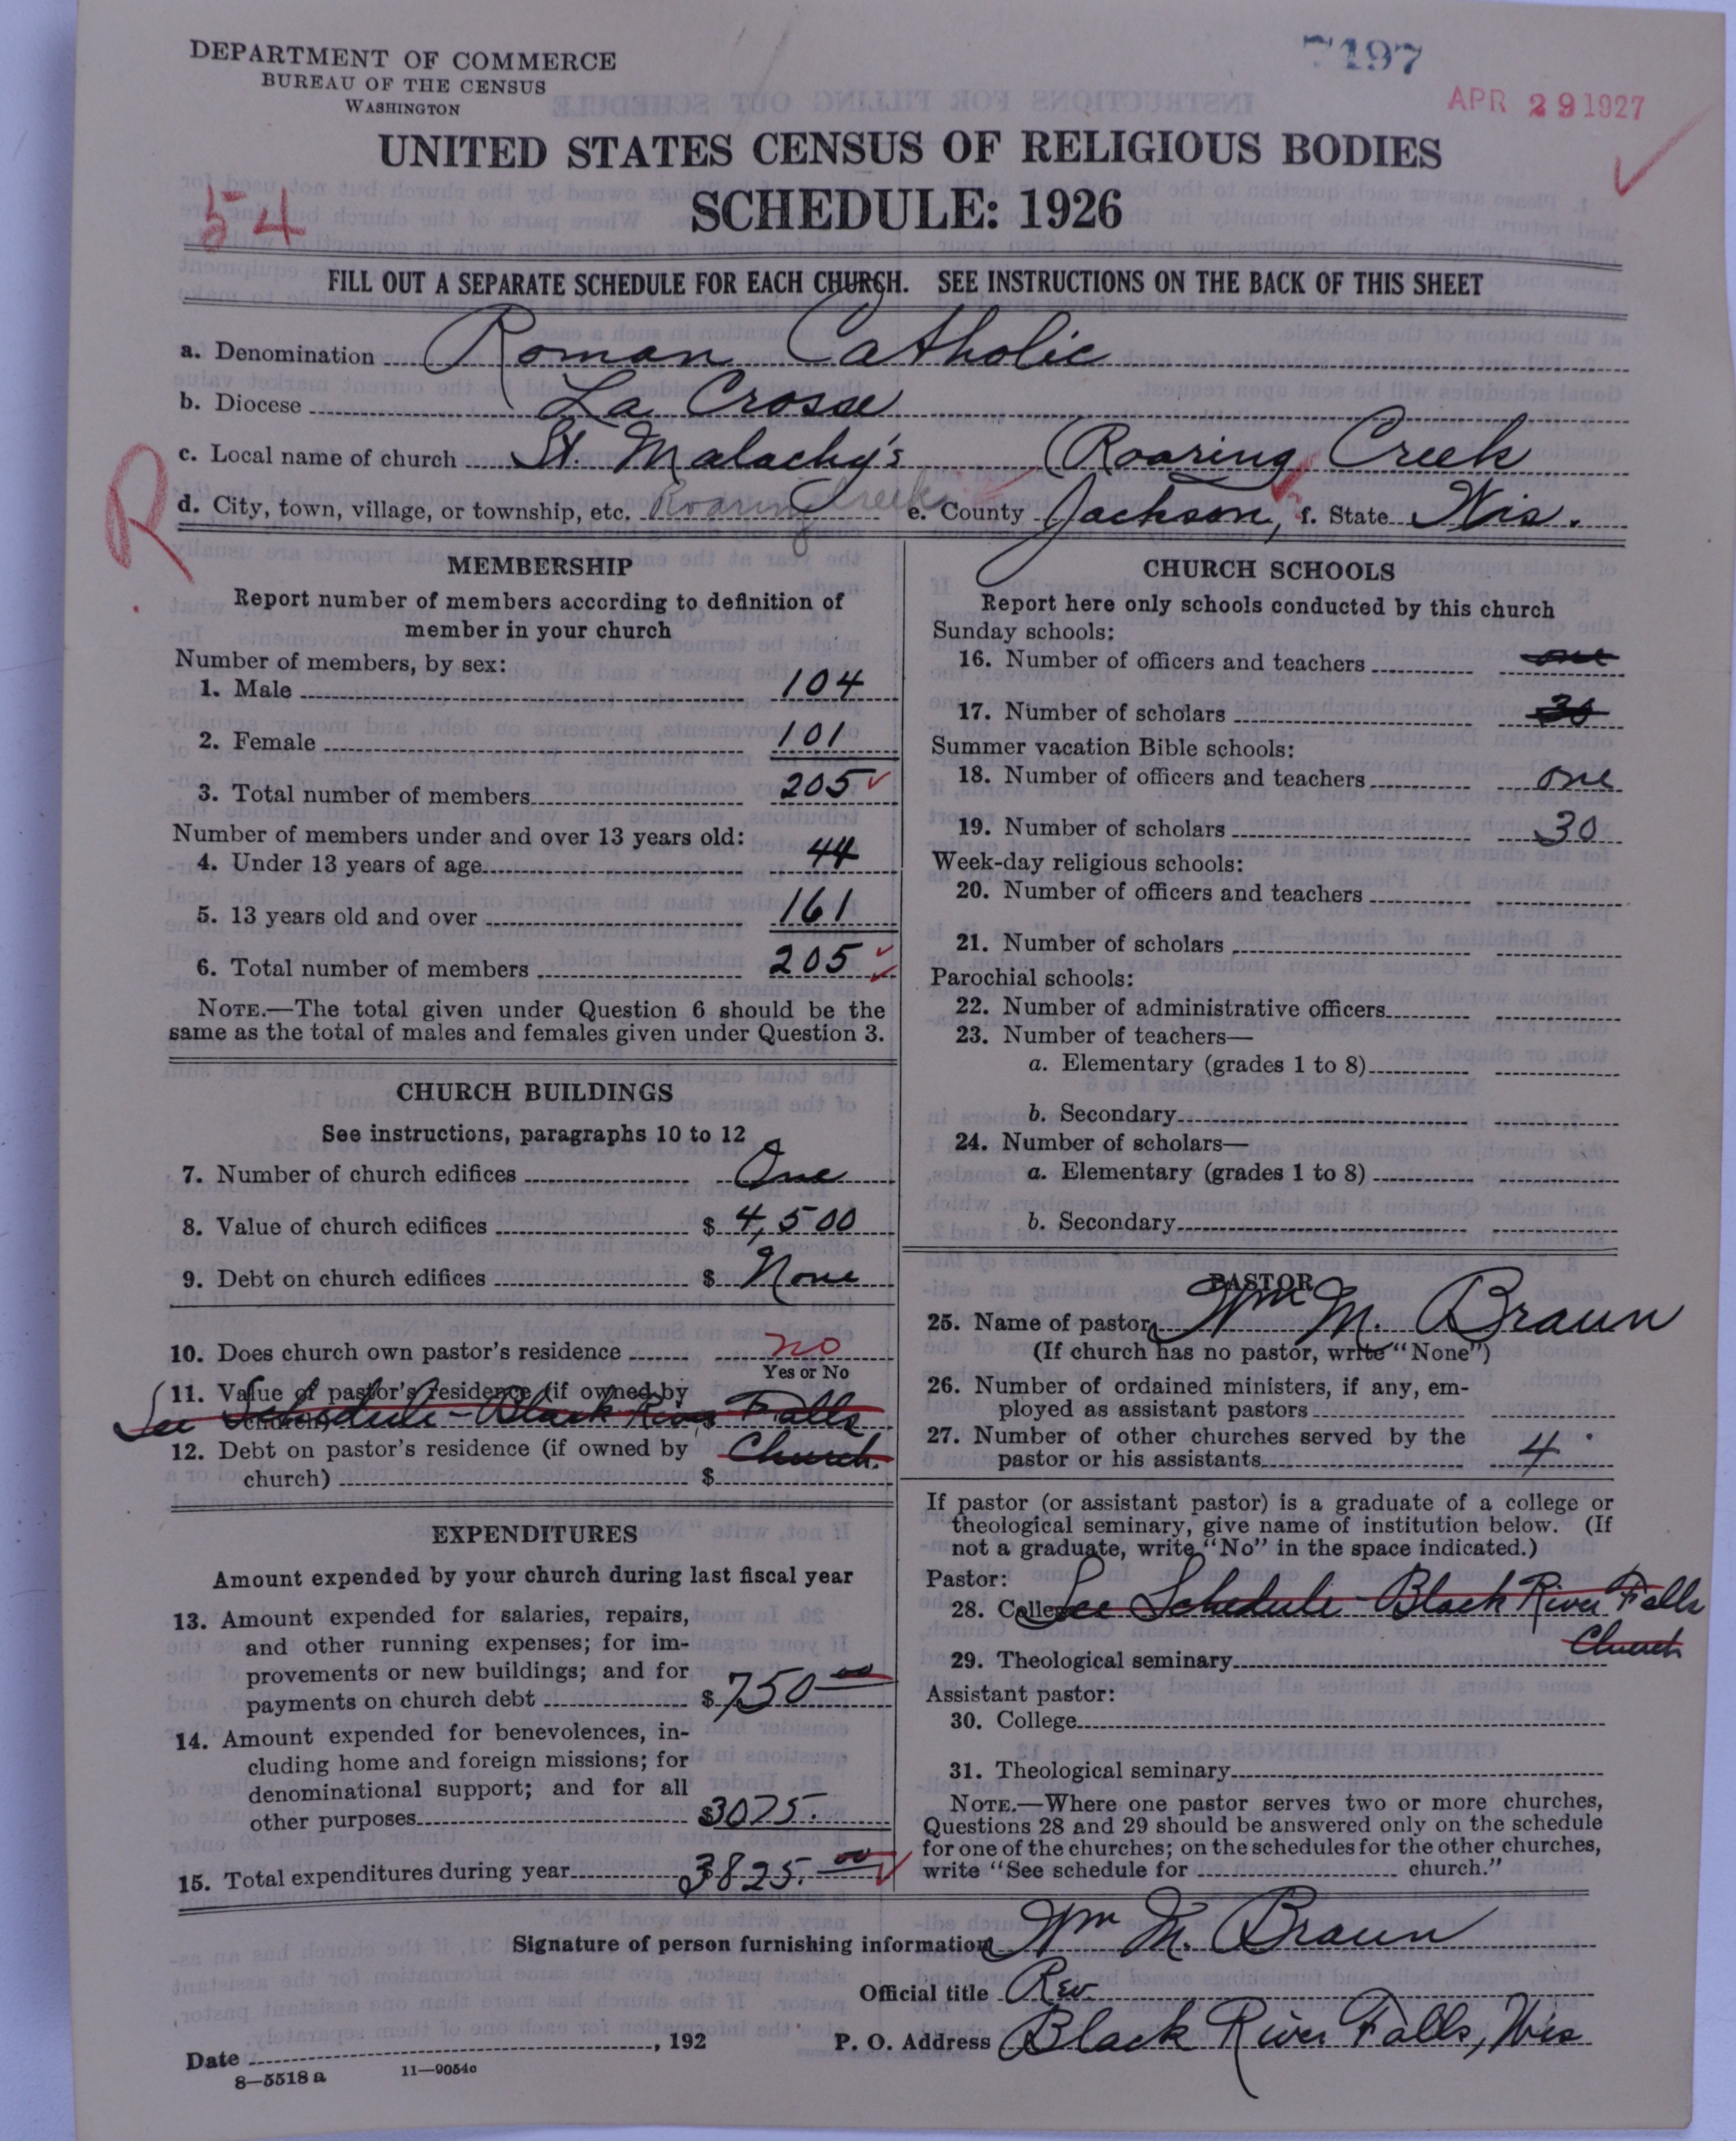 DEPARTMENT OF COMMERCE
BUREAU OF THE CENSUS
WASHINGTON
7197
APR 29 1927
UNITED STATES CENSUS OF RELIGIOUS BODIES
SCHEDULE: 1926
54
FILL OUT A SEPARATE SCHEDULE FOR EACH CHURCH. SEE INSTRUCTIONS ON THE BACK OF THIS SHEET
a. Denomination Roman Catholic
b. Diocese La Crosse
c. Local name of church St. Malachy's Roaring Creek
R
d. City, town, village, or township, etc. Roaring Creek e. County Jackson, f. State Wis.
MEMBERSHIP
Report number of members according to definition of
member in your church
Number of members, by sex:
1. Male 104
2. Female 101
3. Total number of members 205
Number of members under and over 13 years old:
4. Under 13 years of age 44
5. 13 years old and over 161
6. Total number of members 205
NOTE.—The total given under Question 6 should be the
same as the total of males and females given under Question 3.
CHURCH BUILDINGS
See instructions, paragraphs 10 to 12
7. Number of church edifices One
8. Value of church edifices $ 4,500
9. Debt on church edifices $ None
10. Does church own pastor's residence no
Yes or No
11. Value of pastor's residence (if owned by
church) $
See Schedule - Black River Falls
Church.
12. Debt on pastor's residence (if owned by
church) $
EXPENDITURES
Amount expended by your church during last fiscal year
13. Amount expended for salaries, repairs,
and other running expenses; for im-
provements or new buildings; and for
payments on church debt $ 750 00
14. Amount expended for benevolences, in-
cluding home and foreign missions; for
denominational support; and for all
other purposes $ 3075.
15. Total expenditures during year $ 3825. 00
CHURCH SCHOOLS
Report here only schools conducted by this church
Sunday schools:
16. Number of officers and teachers one
17. Number of scholars 30
Summer vacation Bible schools:
18. Number of officers and teachers one
19. Number of scholars 30
Week-day religious schools:
20. Number of officers and teachers
21. Number of scholars
Parochial schools:
22. Number of administrative officers
23. Number of teachers—
a. Elementary (grades 1 to 8)
b. Secondary
24. Number of scholars—
a. Elementary (grades 1 to 8)
b. Secondary
PASTOR
25. Name of pastor Wm M. Braun
(If church has no pastor, write "None")
26. Number of ordained ministers, if any, em-
ployed as assistant pastors
27. Number of other churches served by the
pastor or his assistants 4
If pastor (or assistant pastor) is a graduate of a college or
theological seminary, give name of institution below. (If
not a graduate, write "No" in the space indicated.)
Pastor:
28. College See Schedule - Black River Falls
Church
29. Theological seminary
Assistant pastor:
30. College
31. Theological seminary
NOTE.—Where one pastor serves two or more churches,
Questions 28 and 29 should be answered only on the schedule
for one of the churches; on the schedules for the other churches,
write "See schedule for church."
Signature of person furnishing information Wm M. Braun
Official title Rev.
Date , 192 P. O. Address Black River Falls, Wis
8—5518 a 11—9054c